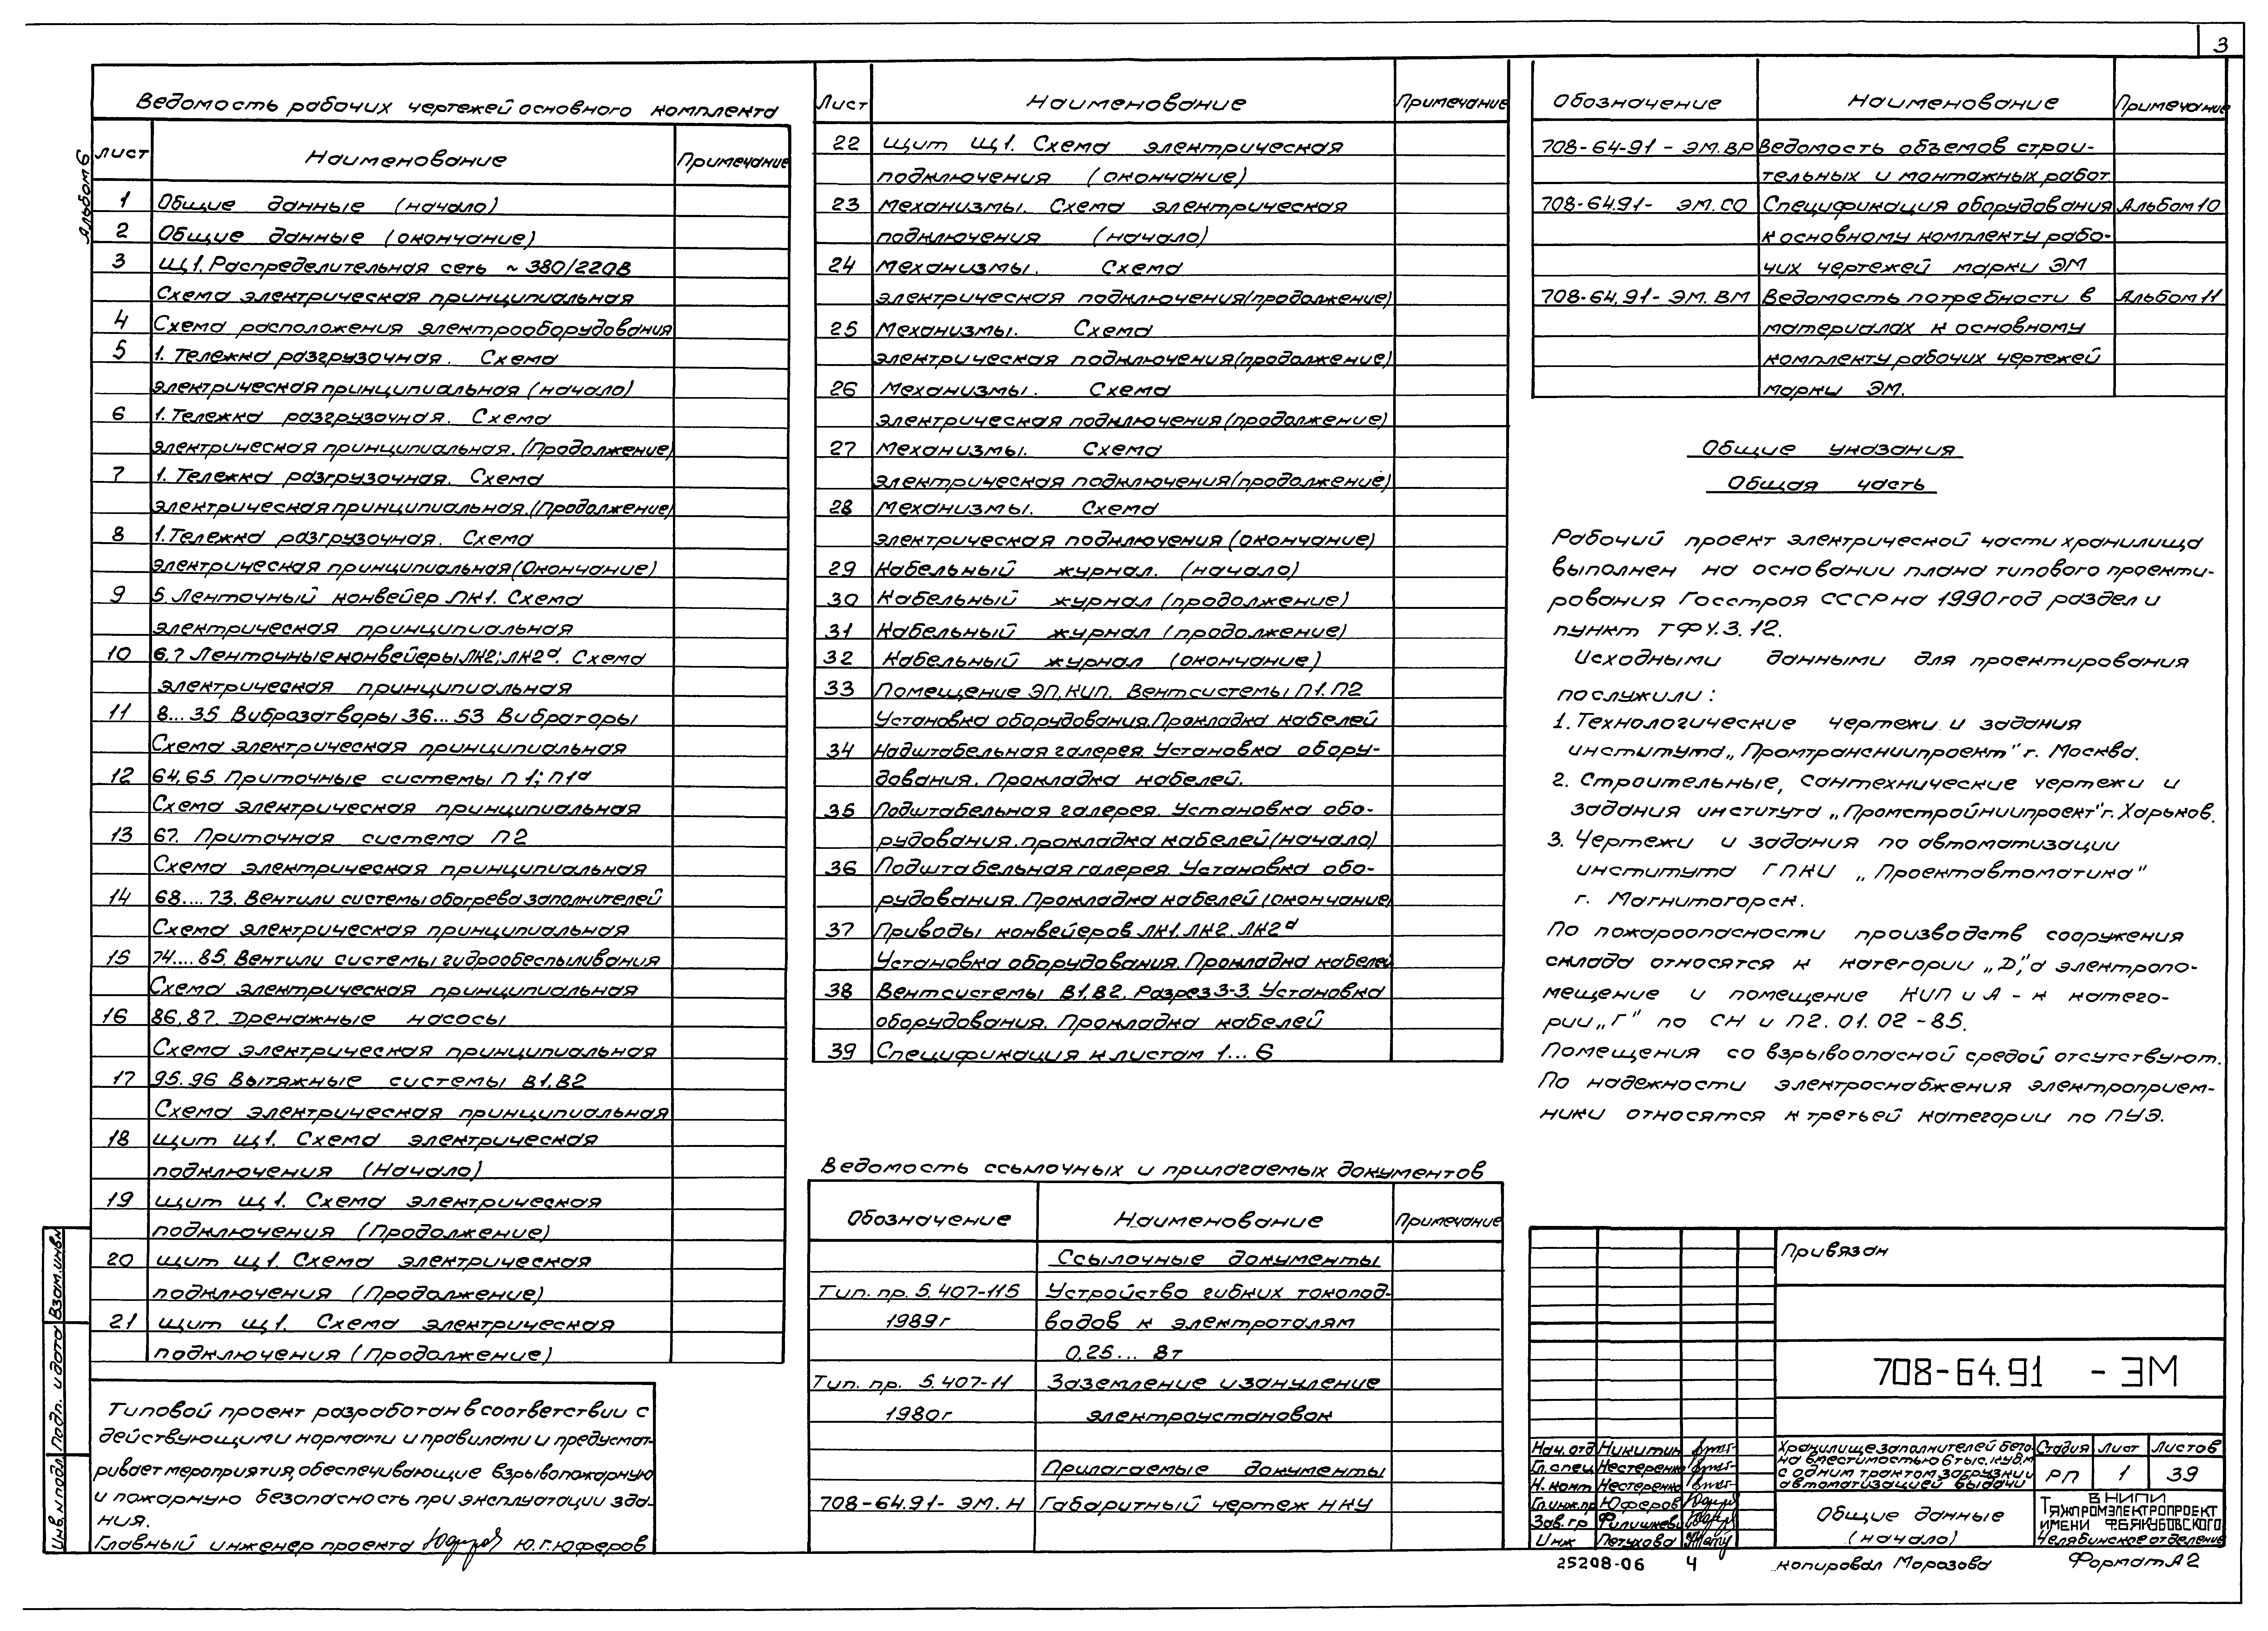 3
Альбом 6
Ведомость рабочих чертежей основного комплекта
Лист Наименование Примечание
1 Общие данные (начало)
2 Общие данные (окончание)
3 Щ1. Распределительная сеть ~ 380/220В
Схема электрическая принципиальная
4 Схема расположения электрооборудования
5 1. Тележка разгрузочная. Схема
электрическая принципиальная (начало)
6 1. Тележка разгрузочная. Схема
электрическая принципиальная. (Продолжение)
7 1. Тележка разгрузочная. Схема
электрическая принципиальная. (Продолжение)
8 1. Тележка разгрузочная. Схема
электрическая принципиальная (Окончание)
9 5. Ленточный конвейер ЛК1. Схема
электрическая принципиальная
10 6.7 Ленточные конвейеры ЛК2; ЛК2а. Схема
электрическая принципиальная
11 8...35 Виброзатворы 36...53 Вибраторы
Схема электрическая принципиальная
12 64,65. Приточные системы П1; П1а
Схема электрическая принципиальная
13 67. Приточная система П2
Схема электрическая принципиальная
14 68....73. Вентили системы обогрева заполнителей
Схема электрическая принципиальная
15 74....85. Вентили системы гидрообеспыливания
Схема электрическая принципиальная
16 86,87. Дренажные насосы
Схема электрическая принципиальная
17 95.96 Вытяжные системы В1, В2
Схема электрическая принципиальная
18 щит щ1. Схема электрическая
подключения (Начало)
19 щит щ1. Схема электрическая
подключения (Продолжение)
20 щит щ1. Схема электрическая
подключения (Продолжение)
21 щит щ1. Схема электрическая
подключения (Продолжение)
Типовой проект разработан в соответствии с
действующими нормами и правилами и предусмат-
ривает мероприятия, обеспечивающие взрывопожарную
и пожарную безопасность при эксплуатации зда-
ния.
Главный инженер проекта Ю.Г. Юферов
Инв. N подл. Подп. и дата Взам. инв. N
Лист Наименование Примечание
22 щит щ1. Схема электрическая
подключения (окончание)
23 Механизмы. Схема электрическая
подключения (начало)
24 Механизмы. Схема
электрическая подключения (продолжение)
25 Механизмы. Схема
электрическая подключения (продолжение)
26 Механизмы. Схема
электрическая подключения (продолжение)
27 Механизмы. Схема
электрическая подключения (продолжение)
28 Механизмы. Схема
электрическая подключения (окончание)
29 Кабельный журнал. (начало)
30 Кабельный журнал (продолжение)
31 Кабельный журнал (продолжение)
32 Кабельный журнал (окончание)
33 Помещение ЭП, КИП. Вентсистемы П1. П2
Установка оборудования. Прокладка кабелей
34 Надштабельная галерея. Установка обору-
дования. Прокладка кабелей.
35 Подштабельная галерея. Установка обо-
рудования. прокладка кабелей (начало)
36 Подштабельная галерея. Установка обо-
рудования. Прокладка кабелей (окончание)
37 Приводы конвейеров ЛК1. ЛК2. ЛК2а
Установка оборудования. Прокладка кабелей
38 Вентсистемы В1, В2. Разрез 3-3. Установка
оборудования. Прокладка кабелей
39 Спецификация к листам 1...6
Ведомость ссылочных и прилагаемых документов
Обозначение Наименование Примечание
Ссылочные документы
Тип. пр. 5.407-115 Устройство гибких токопод-
1989г водов к электроталям
0,25... 8т
Тип. пр. 5.407-11 Заземление и зануление
1980г электроустановок
Прилагаемые документы
708-64.91- ЭМ. Н Габаритный чертеж НКУ
Обозначение Наименование Примечание
708-64-91 - ЭМ. ВР Ведомость объемов строи-
тельных и монтажных работ
708-64.91- ЭМ. СО Спецификация оборудования Альбом 10
к основному комплекту рабо-
чих чертежей марки ЭМ
708-64.91- ЭМ. ВМ Ведомость потребности в Альбом 11
материалах к основному
комплекту рабочих чертежей
марки ЭМ.
Общие указания
Общая часть
Рабочий проект электрической части хранилища
выполнен на основании плана типового проекти-
рования Госстроя СССР на 1990 год раздел и
пункт ТФ У.3.12.
Исходными данными для проектирования
послужили:
1. Технологические чертежи и задания
института „Промтрансниипроект" г. Москва.
2. Строительные, сантехнические чертежи и
задания института „Промстройниипроект" г. Харьков.
3. Чертежи и задания по автоматизации
института ГПКИ „Проектавтоматика"
г. Магнитогорск.
По пожароопасности производств сооружения
склада относятся к категории „Д", а электропо-
мещение и помещение КИП и А - к катего-
рии „Г" по СН и П2. 01. 02 - 85.
Помещения со взрывоопасной средой отсутствуют.
По надежности электроснабжения электроприем-
ники относятся к третьей категории по ПУЭ.
Привязан
708-64.91 - ЭМ
Нач. отд Никитин
Гл. спец Нестеренко
Н. конт Нестеренко
Гл. инж. пр Юферов
Зав. гр Филишкеви
Инж Петухова
Хранилище заполнителей бето-
на вместимостью 6 тыс. куб. м
с одним трактом загрузки и
автоматизацией выдачи
Стадия Лист Листов
РП 1 39
Общие данные
(начало)
ВНИПИ
Тяжпромэлектропроект
имени Ф.Б. Якубовского
Челябинское отделение
25208-06 4 копировал Морозова Формат А2